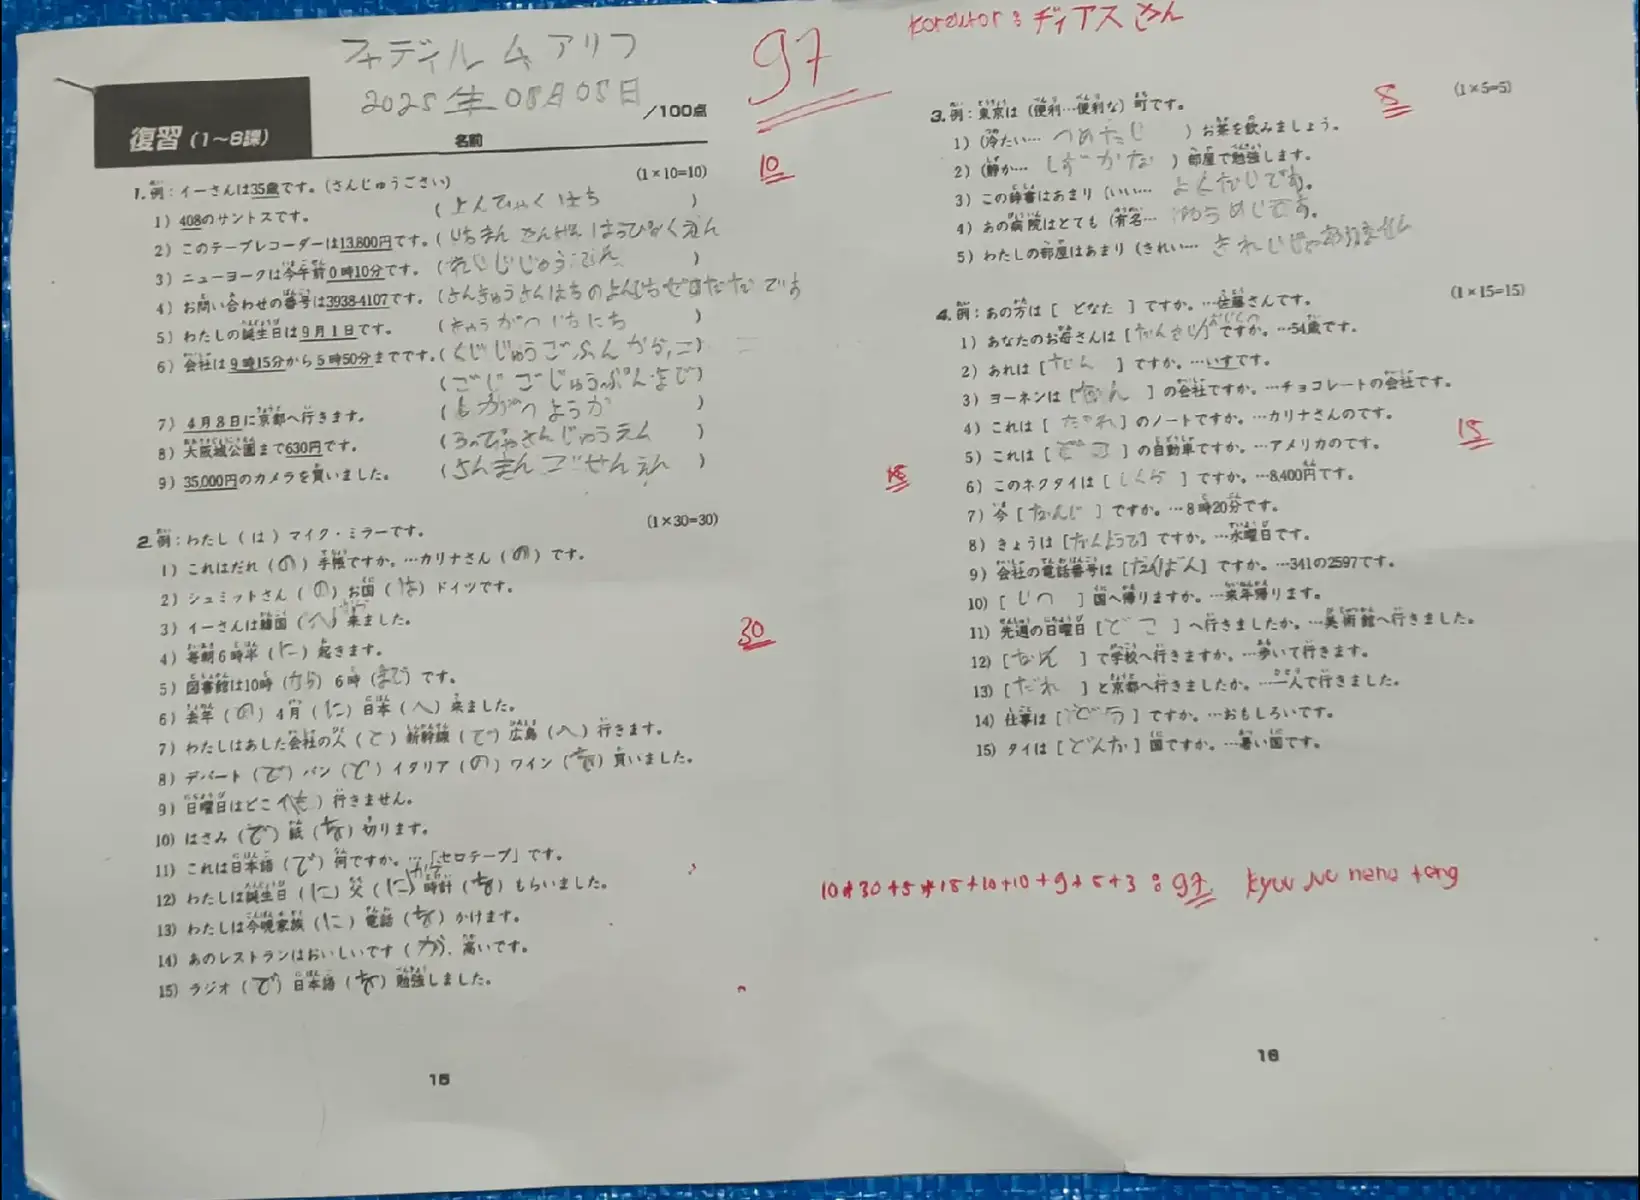 korektor : ディアス さん
フャディル ム アリフ
2025 年 08月 05日
97
/100点
復習 (1~8課)
名前
1. 例：イーさんは35歳です。(さんじゅうごさい) (1×10=10)
10
1) 408のサントスです。 (よんひゃく はち)
2) このテープレコーダーは13,800円です。
3) ニューヨークは今午前0時10分です。
4) お問い合わせの番号は3938-4107です。
5) わたしの誕生日は9月1日です。
6) 会社は9時15分から5時50分までです。
(ごじ ごじゅうぷんまで)
7) 4月8日に京都へ行きます。 (しがつ ようか)
8) 大阪城公園まで630円です。 (ろっぴゃさんじゅうえん)
9) 35,000円のカメラを買いました。 (さんまん ごせんえん)
2. 例：わたし (は) マイク・ミラーです。 (1×30=30)
1) これはだれ (の) 手帳ですか。…カリナさん (の) です。
2) シュミットさん (の) お国 (は) ドイツです。
3) イーさんは韓国 来ました。
4) 毎朝6時半 (に) 起きます。
30
5) 図書館は10時 (から) 6時 (まで) です。
6) 去年 (の) 4月 (に) 日本 (へ) 来ました。
7) わたしはあした会社の人 (と) 新幹線 (で) 広島 (へ) 行きます。
8) デパート (で) パン (と) イタリア (の) ワイン (を) 買いました。
9) 日曜日はどこ 行きません。
10) はさみ (で) 紙 (を) 切ります。
11) これは日本語 (で) 何ですか。…「セロテープ」です。
12) わたしは誕生日 (に) 父 (に) 時計 (を) もらいました。
13) わたしは今晩家族 (に) 電話 (を) かけます。
14) あのレストランはおいしいです (が)、高いです。
15) ラジオ (で) 日本語 (を) 勉強しました。
15
3. 例：東京は (便利…便利な) 町です。 (1×5=5)
5
1) (冷たい… ) お茶を飲みましょう。
2) (静か… しずかな) 部屋で勉強します。
3) この辞書はあまり (いい… よくないです。
4) あの病院はとても (有名… ゆうめいです。
5) わたしの部屋はあまり (きれい… きれいじゃありません
4. 例：あの方は [ どなた ] ですか。…佐藤さんです。 (1×15=15)
1) あなたのお母さんは ですか。…54歳です。
2) あれは [なん] ですか。…いすです。
3) ヨーネンは [なん] の会社ですか。…チョコレートの会社です。
4) これは [だれ] のノートですか。…カリナさんのです。
5) これは [どこ] の自動車ですか。…アメリカのです。
15
6) このネクタイは [いくら] ですか。…8,400円です。
7) 今 [なんじ] ですか。…8時20分です。
8) きょうは [なんようび] ですか。…水曜日です。
9) 会社の電話番号は [なんばん] ですか。…341の2597です。
10) [いつ] 国へ帰りますか。…来年帰ります。
11) 先週の日曜日 [どこ] へ行きましたか。…美術館へ行きました。
12) [なん] で学校へ行きますか。…歩いて行きます。
13) [だれ] と京都へ行きましたか。…一人で行きました。
14) 仕事は [どう] ですか。…おもしろいです。
15) タイは [どんな] 国ですか。…暑い国です。
10+30+5+15+10+10+9+5+3 : 97 kyuu juu nana teng
16